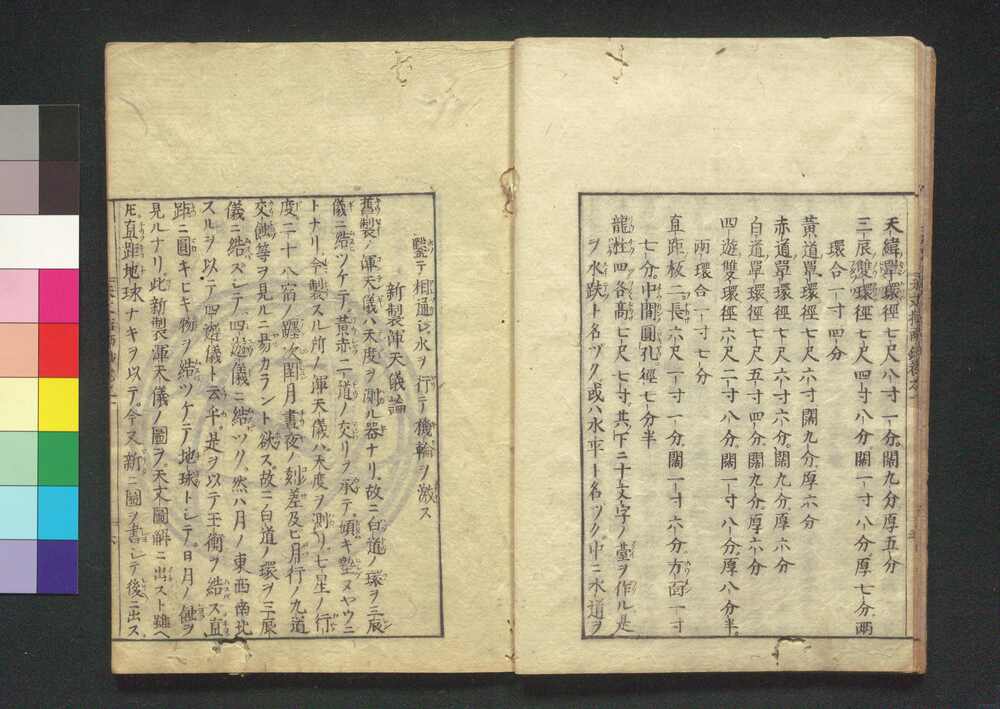 天緯單環徑七尺八寸一分。闊九分厚五分
三辰雙環徑七尺四寸八分闊一寸八分、厚七分、兩
環合一寸四分
黃道單環徑七尺六寸闊九分、厚六分
赤道單環徑七尺六寸六分。闊九分、厚六分
白道單環徑七尺五寸四分、闊九分、厚六分
四遊雙環徑六尺二寸八分闊一寸八分、厚八分半。
兩環合一寸七分
直距板二、長六尺一寸一分、闊一寸六分、方面一寸
七分、中間圓孔徑七分半
龍柱四各高七尺七寸、其下ニ十文字ノ臺ヲ作ル是
ヲ水趺ト名ヅク、或ハ水平ト名ヅク。中ニ水道ヲ
鑿テ相通シ水ヲ行テ機輪ヲ激ス
新製渾天儀論
舊製ノ渾天儀ハ天度ヲ測ル器ナリ、故ニ白道ノ環ヲ三辰
儀ニ結ツケテ、黃赤二道ノ交リヲ承テ、傾キ墊ヌヤウニ
トナリ、今製スル所ノ渾天儀ハ天度ヲ測リ、七星ノ行
度、二十八宿ノ躔次、閏月晝夜ノ刻差、及ビ月行ノ九道
交蝕等ヲ見ルニ易カラント欲ス、故ニ白道ノ環ヲ三辰
儀ニ結ズシテ、四遊儀ニ結ツク、然ハ月ノ東西南北
スルヲ以テ、四遊儀ト云乎、是ヲ以テ玉衡ヲ結ズ直
距ニ圓キヒキ物ヲ結ツケテ地球トシテ。日月ノ蝕ヲ
見ルナリ、此新製渾天儀ノ圖ヲ、天文圖解ニ出スト雖へ
𪜈直距地球ナキヲ以テ。今又新ニ圖ヲ書シテ後ニ出ス